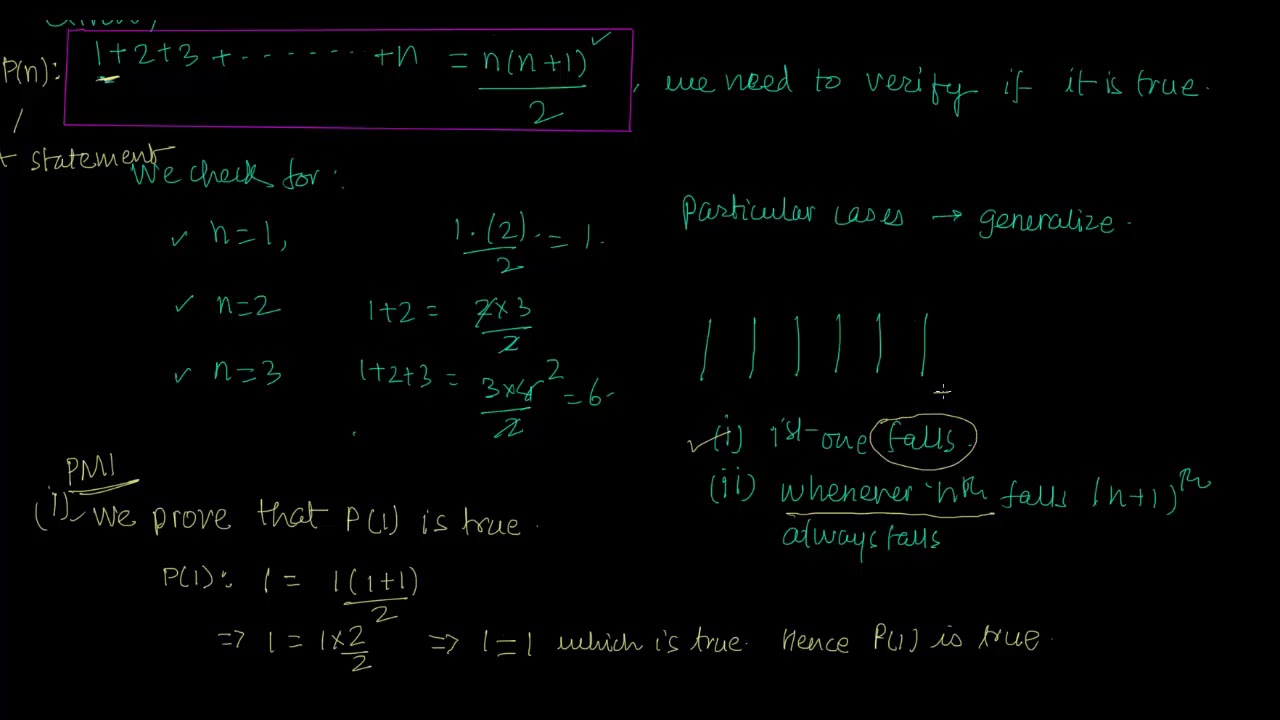 P(n): 1+2+3+.......+n = n(n+1)/2, we need to verify if it is true.
statement
We check for:
n=1, 1.(2)/2 = 1.
Particular cases → generalize.
n=2 1+2 = 2×3/2
n=3 1+2+3 = 3×4/2 2 = 6.
(i) 1st one falls.
(ii) whenever nth falls (n+1)th
always falls
PMI
(i) We prove that P(1) is true.
P(1): 1 = 1(1+1)/2
⇒ 1 = 1×2/2 ⇒ 1=1 which is true. Hence P(1) is true.